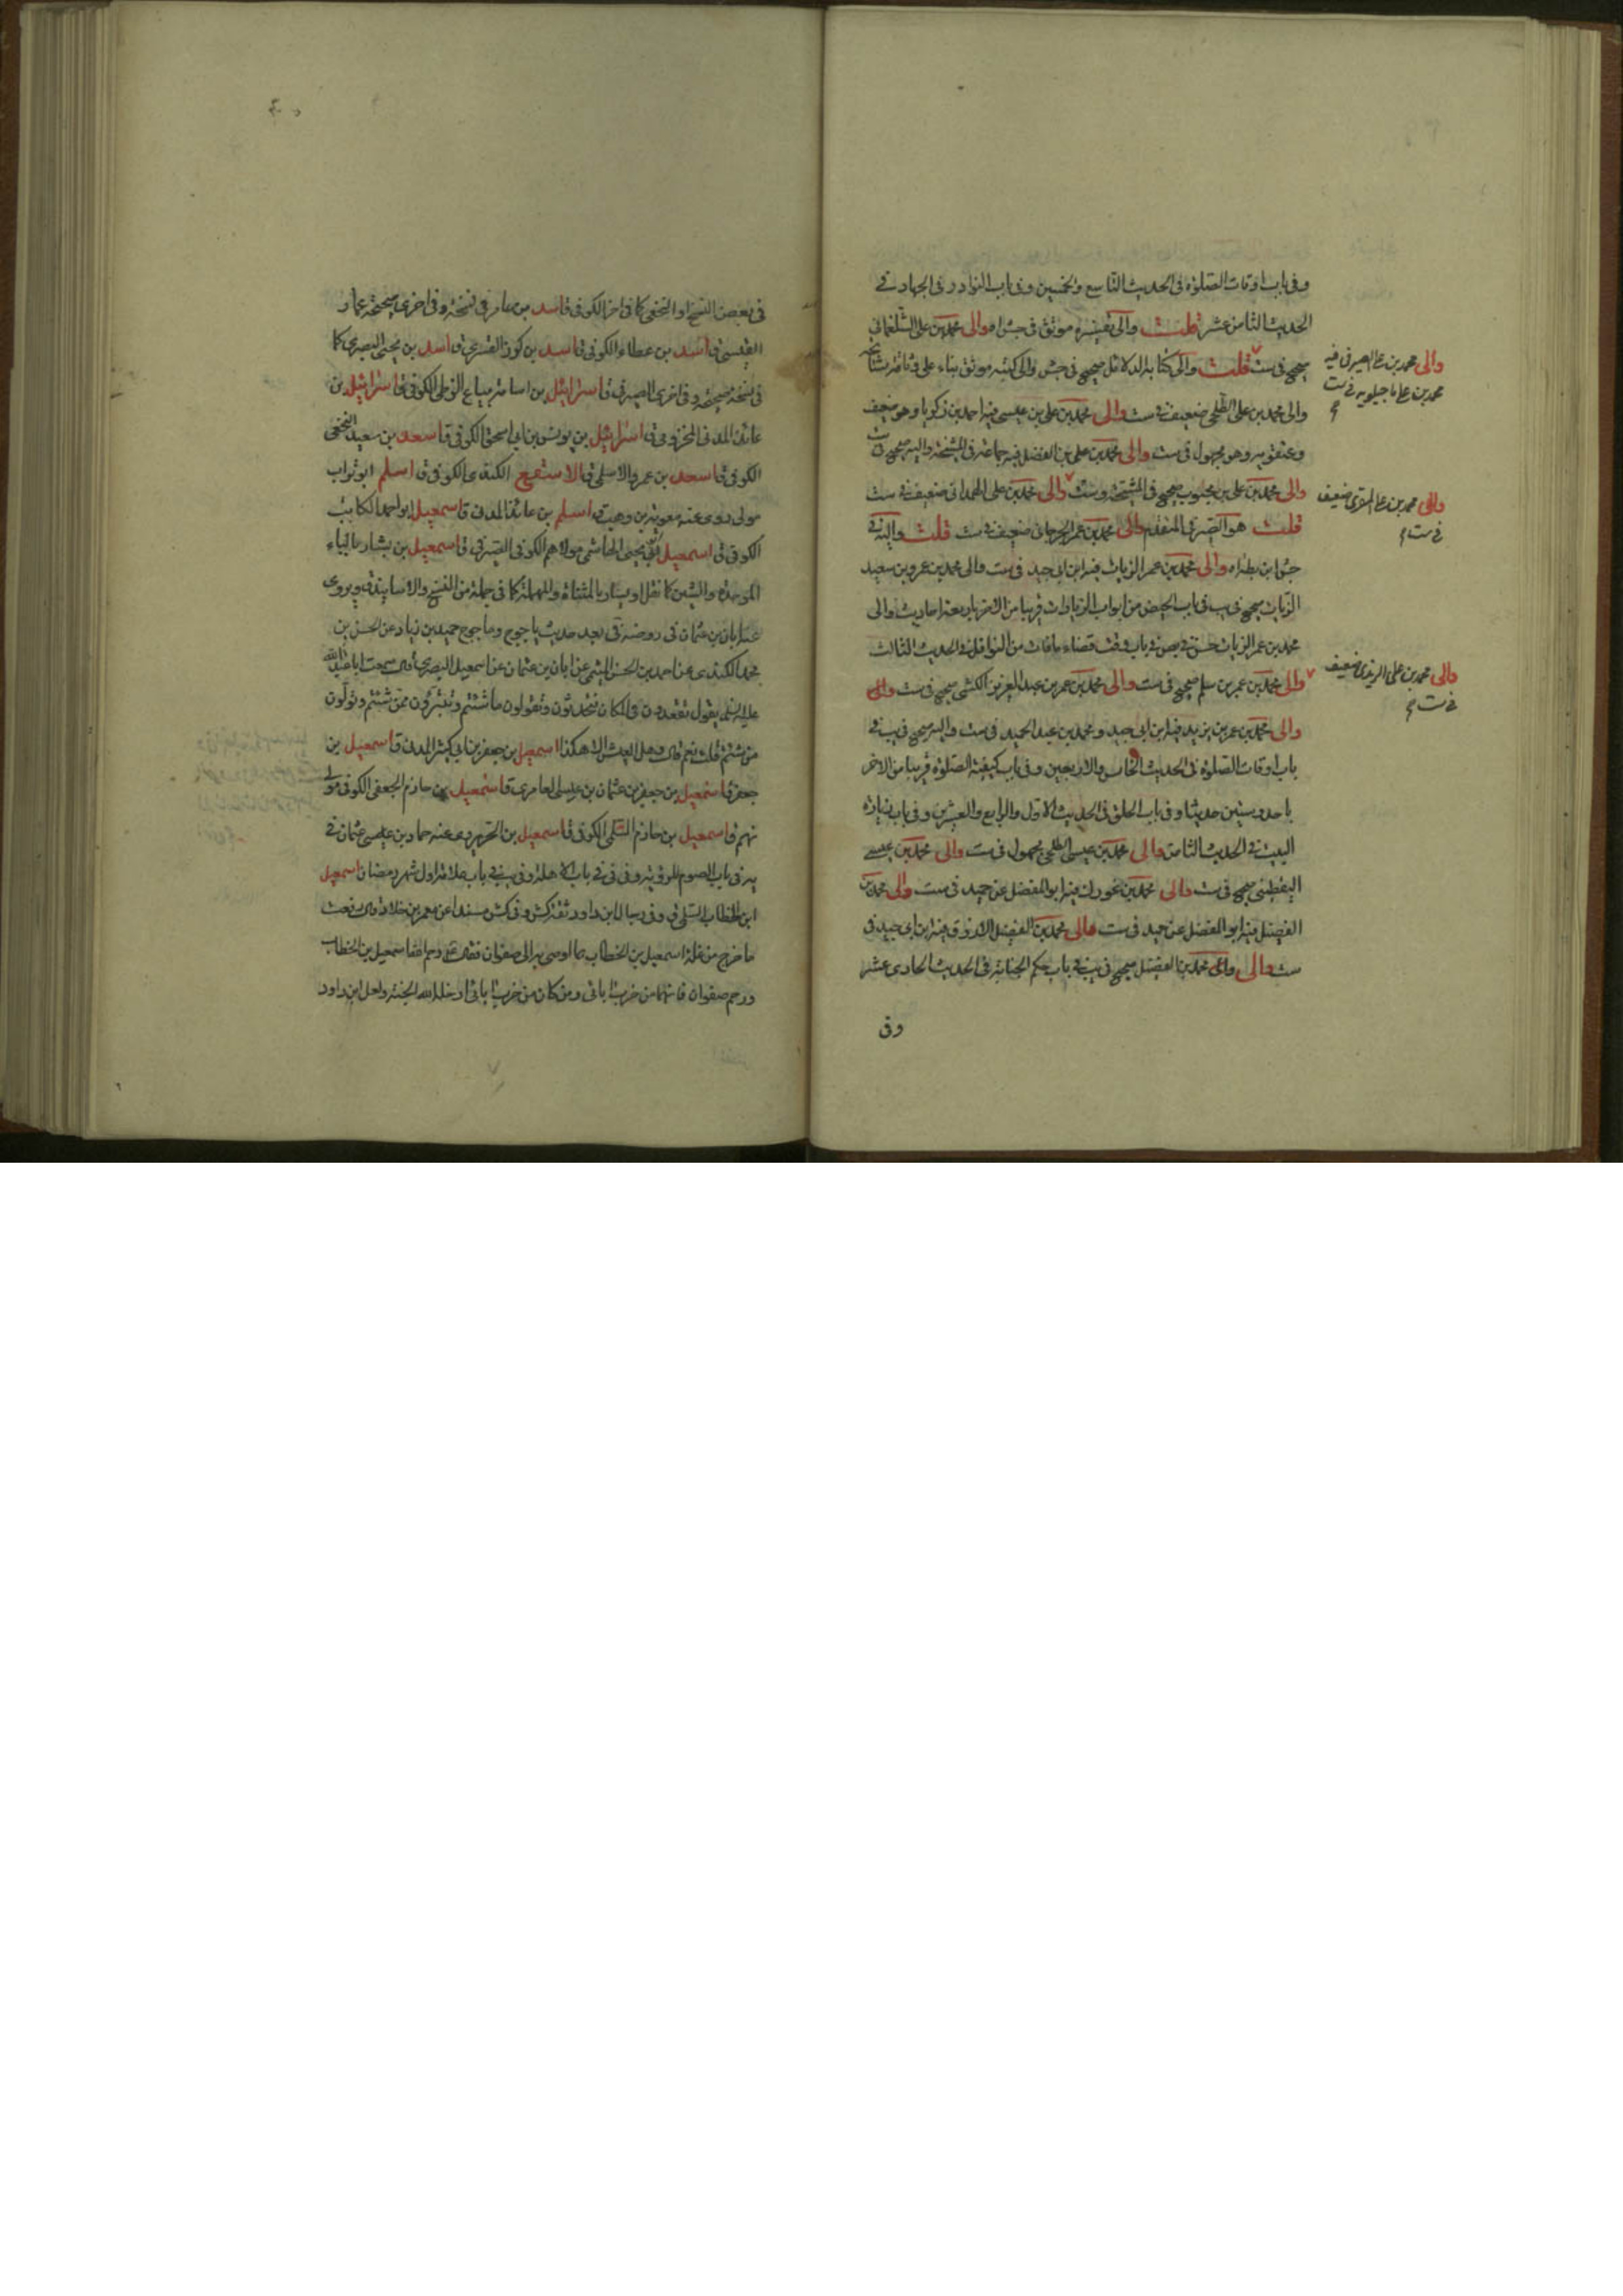 وفى باب اوقات الصلوة فى الحديث التاسع والخمسين وفى باب النوادر فى الجهاد فى
الحديث الثامن عشر قلت والى تفسيره موثق فى جش اه والى محمد بن على الشلغمانى
صحيح فى ست قلت والى كتابه الدلائل صحيح فى جش والى كتبه موثق بناء على وثاقة مشايخه
والى محمد بن على الطلحى ضعيف فى ست والى محمد بن على بن عيسى فيه احمد بن زكريا وهو ضعيف
وهو مجهول فى ست والى محمد بن على بن الفضل فيه جماعة فى المشيخة واليه صحيح فى ست
والى محمد بن على بن محبوب صحيح فى المشيخة وست والى محمد بن على الهمدانى ضعيف فى ست
قلت هو الصيرفى المتقدم والى محمد بن عمر الجرجانى ضعيف فى ست قلت واليه فى
جش ابن بطة اه والى محمد بن عمر الزيات فيه ابن ابى جيد فى ست والى محمد بن عمرو بن سعيد
الزيات صحيح فى يب فى باب الحيض من ابواب الزيادات قريبا من الاخر باربعة احاديث والى
محمد بن عمر الزيات حسن فى بص فى باب وقت قضاء ما فات من النوافل فى الحديث الثالث
والى محمد بن عمر بن سلم صحيح فى ست والى محمد بن عمر بن عبد العزيز الكشى صحيح فى ست والى
والى محمد بن عمر بن يزيد فيه ابن ابى جيد ومحمد بن عبد الحميد فى ست واليه صحيح فى يب فى
باب اوقات الصلوة فى الحديث الخامس والاربعين وفى باب كيفية الصلوة قريبا من الاخر
باحد وستين حديثا وفى باب الحلق فى الحديث الاول والرابع والعشرين وفى باب زيارة
البيت فى الحديث الثامن والى محمد بن عيسى الطلحى مجهول فى ست والى محمد بن عيسى
اليقطينى صحيح فى ست والى محمد بن غورك فيه ابو المفضل عن حميد فى ست والى محمد بن
الفضيل فيه ابو المفضل عن حميد فى ست والى محمد بن الفضيل الازرق فيه ابن ابى جيد فى
ست والى والى محمد بن الفضيل صحيح فى يب فى باب حكم الجنابة فى الحديث الحادى عشر
وفى
والى محمد بن على الصيرفى فيه
محمد بن على ماجيلويه فى ست
م
والى محمد بن على المقرى ضعيف
فى ست م
والى محمد بن على ضعيف
فى ست م
فى بعض النسخ او النخعى كما فى اخر الكوفى ق اسد بن عامر فى نسخة وفى اخرى صحيحة عمار
القيسى ق اسد بن عطاء الكوفى ق اسد بن كرز القسرى ق اسد بن يحيى البصرى كما
فى نسخة صحيحة وفى اخرى الصيرفى ق اسرائيل بن اسامة بياع الزطى الكوفى ق اسرائيل بن
عائذ المدنى المخزومى ق اسرائيل بن يونس بن ابى اسحق الكوفى ق اسعد بن سعيد النخعى
الكوفى ق اسعد بن عمرو الاسلمى ق الاسقع الكندى الكوفى ق اسلم ابو تراب
مولى روى عنه معوية بن وهب ق اسلم بن عائذ المدنى ق اسمعيل ابو احمد الكاتب
الكوفى ق اسمعيل بن يحيى الهاشمى مولاهم الكوفى الصيرفى ق اسمعيل بن بشار بالباء
الموحدة والشين كما نقل او يسار بالمثناة والمهملة كما فى جملة من النسخ والاسانيد ق ويروى
عنه ابان بن عثمان فى روضة فى بعيد حديث ياجوج وماجوج حميد بن زياد عن الحسن بن
محمد الكندى عن احمد بن الحسن الميثمى عن ابان بن عثمان عن اسمعيل البصرى قال سمعت ابا عبد الله
عليه السلم يقول تقعدون فى المكان فتحدثون وتقولون ما شئتم وتتبرؤن ممن شئتم وتولون
من شئتم قلت نعم قال وهل العيش الا هكذا اسمعيل بن جعفر بن ابى كثير المدنى ق اسمعيل بن
جعفر ق اسمعيل بن جعفر بن عثمان بن عيسى العامرى ق اسمعيل بن حازم الجعفى الكوفى مولى
لهم ق اسمعيل بن حازم السلمى الكوفى ق اسمعيل بن الحر يروى عنه حماد بن عيسى عثمان فى
يه فى باب الصوم للرؤية وفى فى فى باب الاهلة وفى يب فى باب علامة اول شهر رمضان اسمعيل
ابن الخطاب السلمى ق وفى رجال ابن داود ثقة كش وفى كش مسندا عن معمر بن خلاد قال رفعت
ما خرج من غلة اسمعيل بن الخطاب بما اوصى به الى صفوان فقال رحم الله اسمعيل بن الخطاب
ورحم صفوان فانهما من حزب ابائى ومن كان من حزب ابائى ادخله الله الجنة ولعل ابن داود